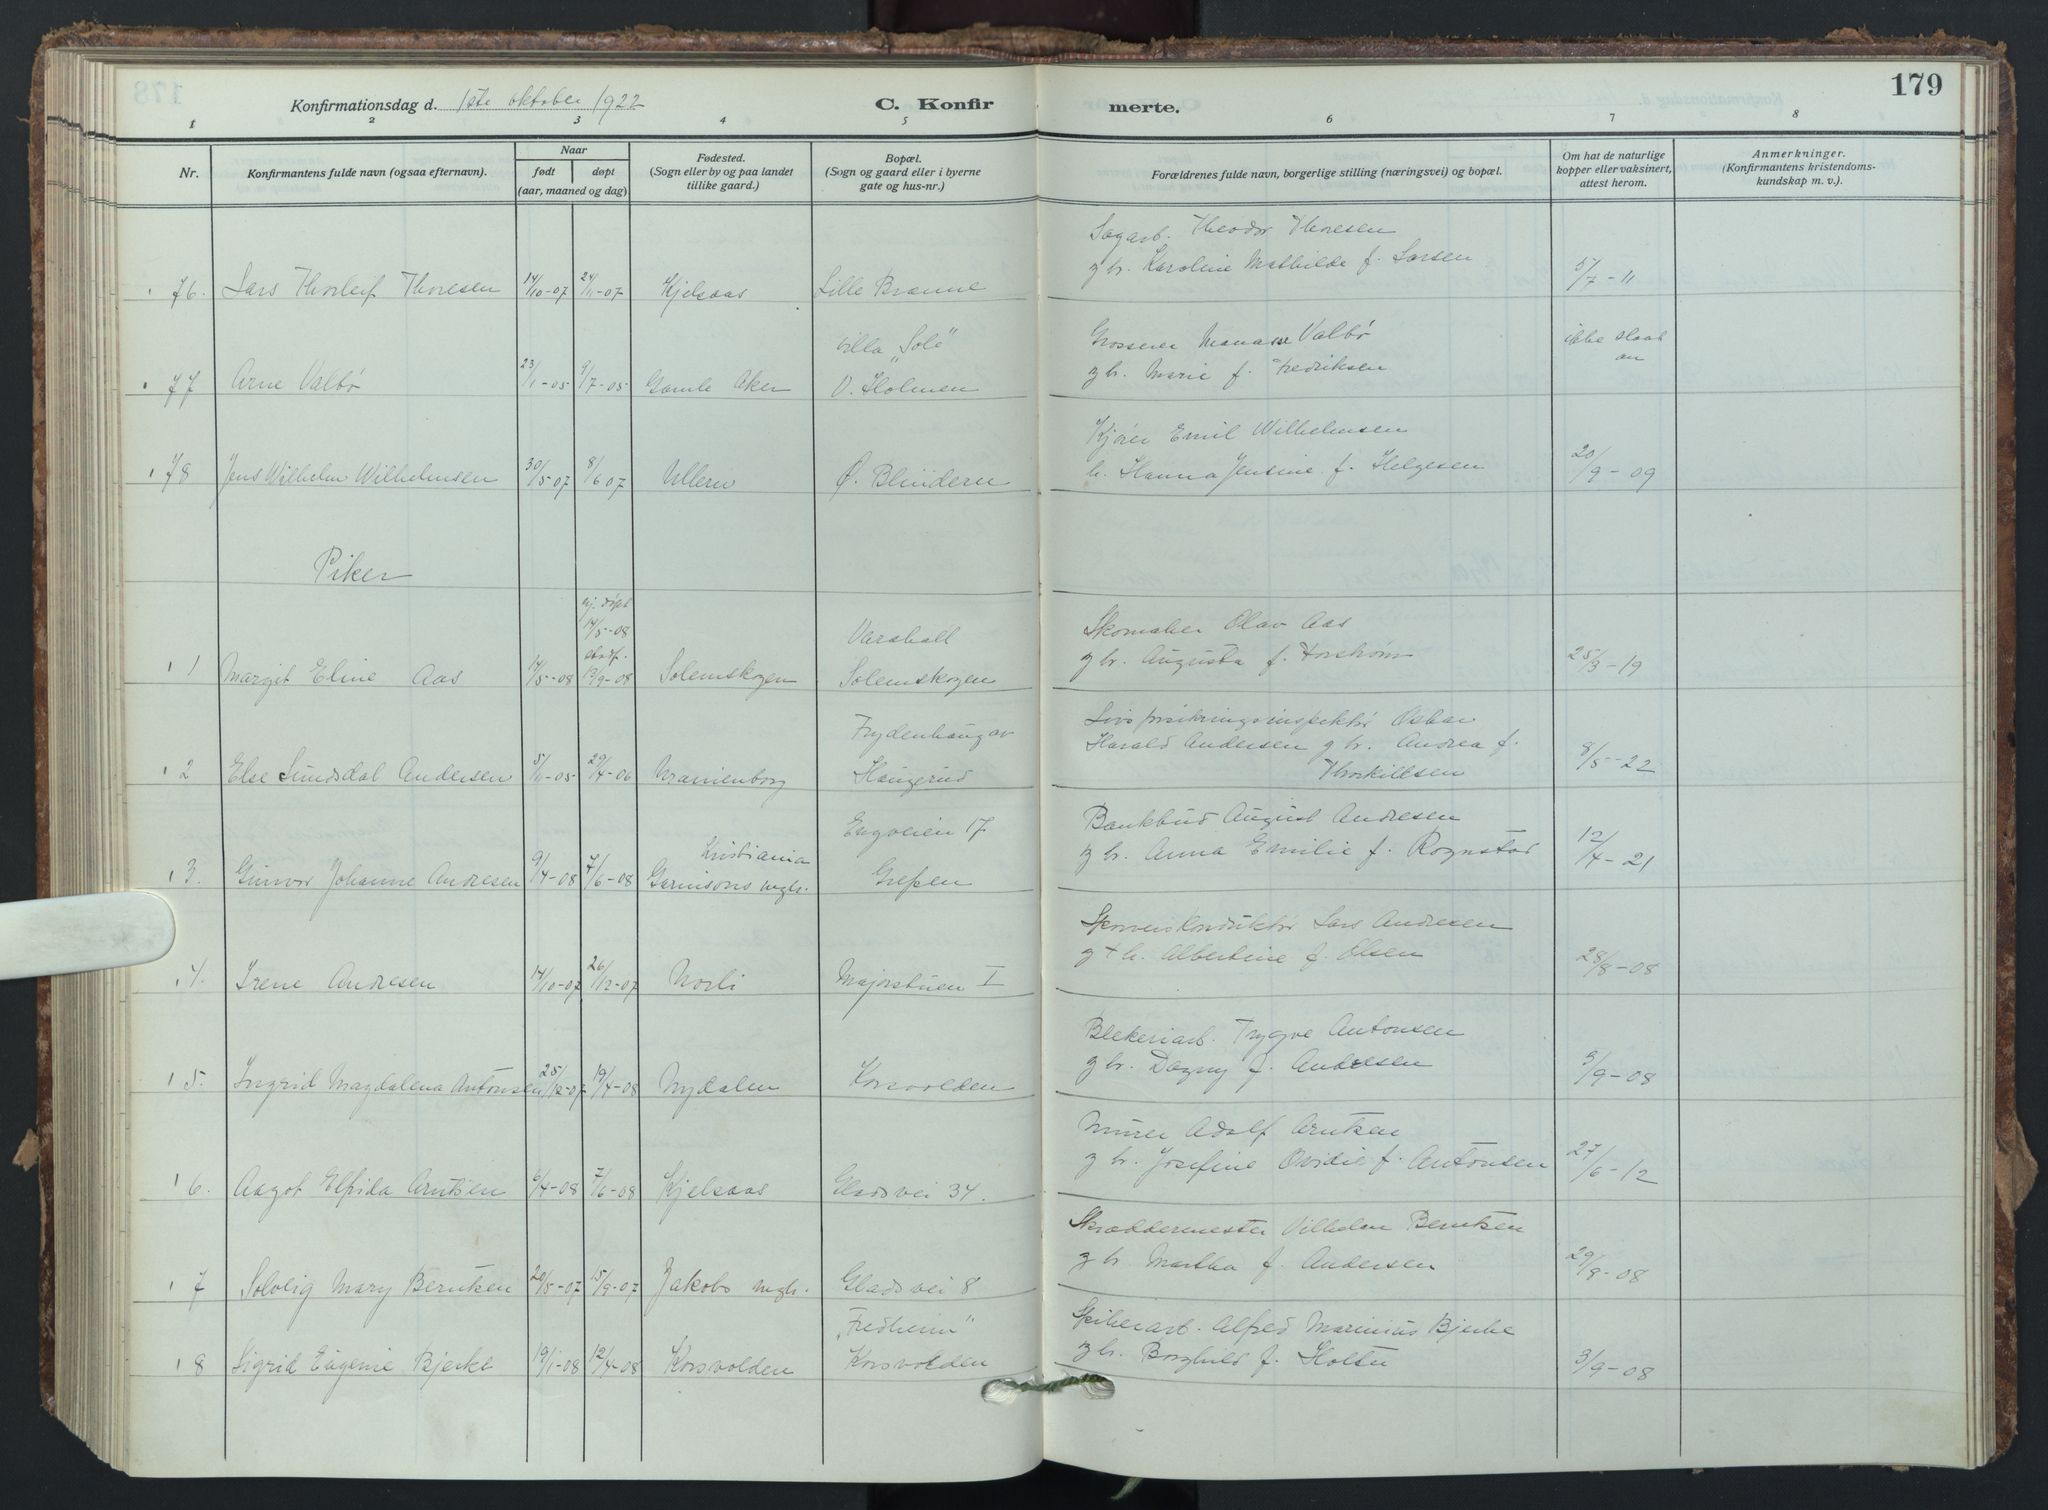 179
Konfirmationsdag d. 1ste oktober 1922 C. Konfirmerte.
1 2 3 4 5 6 7 8
Nr. Konfirmantens fulde navn (ogsaa efternavn). Naar født døpt (aar, maaned og dag) Fødested. (Sogn eller by og paa landet tillike gaard.) Bopæl. (Sogn og gaard eller i byerne gate og hus-nr.) Forældrenes fulde navn, borgerlige stilling (næringsvei) og bopæl. Om hat de naturlige kopper eller vaksinert, attest herom. Anmerkninger. (Konfirmantens kristendomskundskap m. v.).
Sagarb. Theodor Thoresen
76. Lars Thorleif Thoresen 14/10-07 24/11-07 Kjelsaas Lille Brænne g hr. Karoline Mathilde f. Larsen 5/7-11
villa "Sole" Grosserer Manasse Valbø ikke slaat an
77 Arne Valbø 23/1-05 9/7-05 Gamle Aker V. Holmen g hr. Marie f. Fredriksen
Kjører Emil Wilhelmsen
78 Jens Wilhelm Wilhelmsen 30/5 07 8/6 07 Ullern Ø. Blindern h. Hanna Jensine f. Helgesen 20/9-09
Piker
hj. døpt 14/5-08
Varahall Skomaker Olav Aas
1 Margit Eline Aas 14/5-08 stadf. 13/9-08 Solemskogen Solemskogen g hr. Augusta f. 25/3-19
Frydenhaug av Livsforsikringsinspektør Oskar
Harald Andersen g hr. Andrea f.
2 Else Sundsdal Andersen 5/11-05 29/4-06 Uranienborg Haugerud Thorkildsen 8/5-22
Engveien 17 Bankbud August Andresen
3. Gunvor Johanne Andresen 9/4-08 7/6-08 Kristiania Garnisons mgh. Grefsen g hr. Anna Emilie f. Rognstad 12/4-21
Sporveiskonduktør Lars Andresen
4. Irene Andresen 14/10-07 26/12-07 Norli Majorstuen I g + h. Albertine f. Olsen 28/8-08
Blekeriarb. Trygve Antonsen
5. Ingrid Magdalena Antonsen 25/12-07 19/4-08 Nydalen Korsvolden g hr. Dagny f. Andresen 5/9-08
Murer Adolf Arntzen
6. Aagot Elfrida Arntsen 6/4-08 7/6-08 Kjelsaas Glads vei 34. g hr. Josefine Ovidie f. Antonsen 27/6-12
Skræddermester Vilhelm Berntzen
7 Solvig Mary Berntzen 20/5-07 15/9-07 Jakobs mgh. Glads vei 8 g hr. Martha f. Andersen 29/8-08
"Fredheim" Spikerarb. Alfred Marinius Bjerke
8 Sigrid Eugenie Bjerke 19/1-08 12/4-08 Korsvolden Korsvolden g hr. Borghild f. Holter 3/9-08